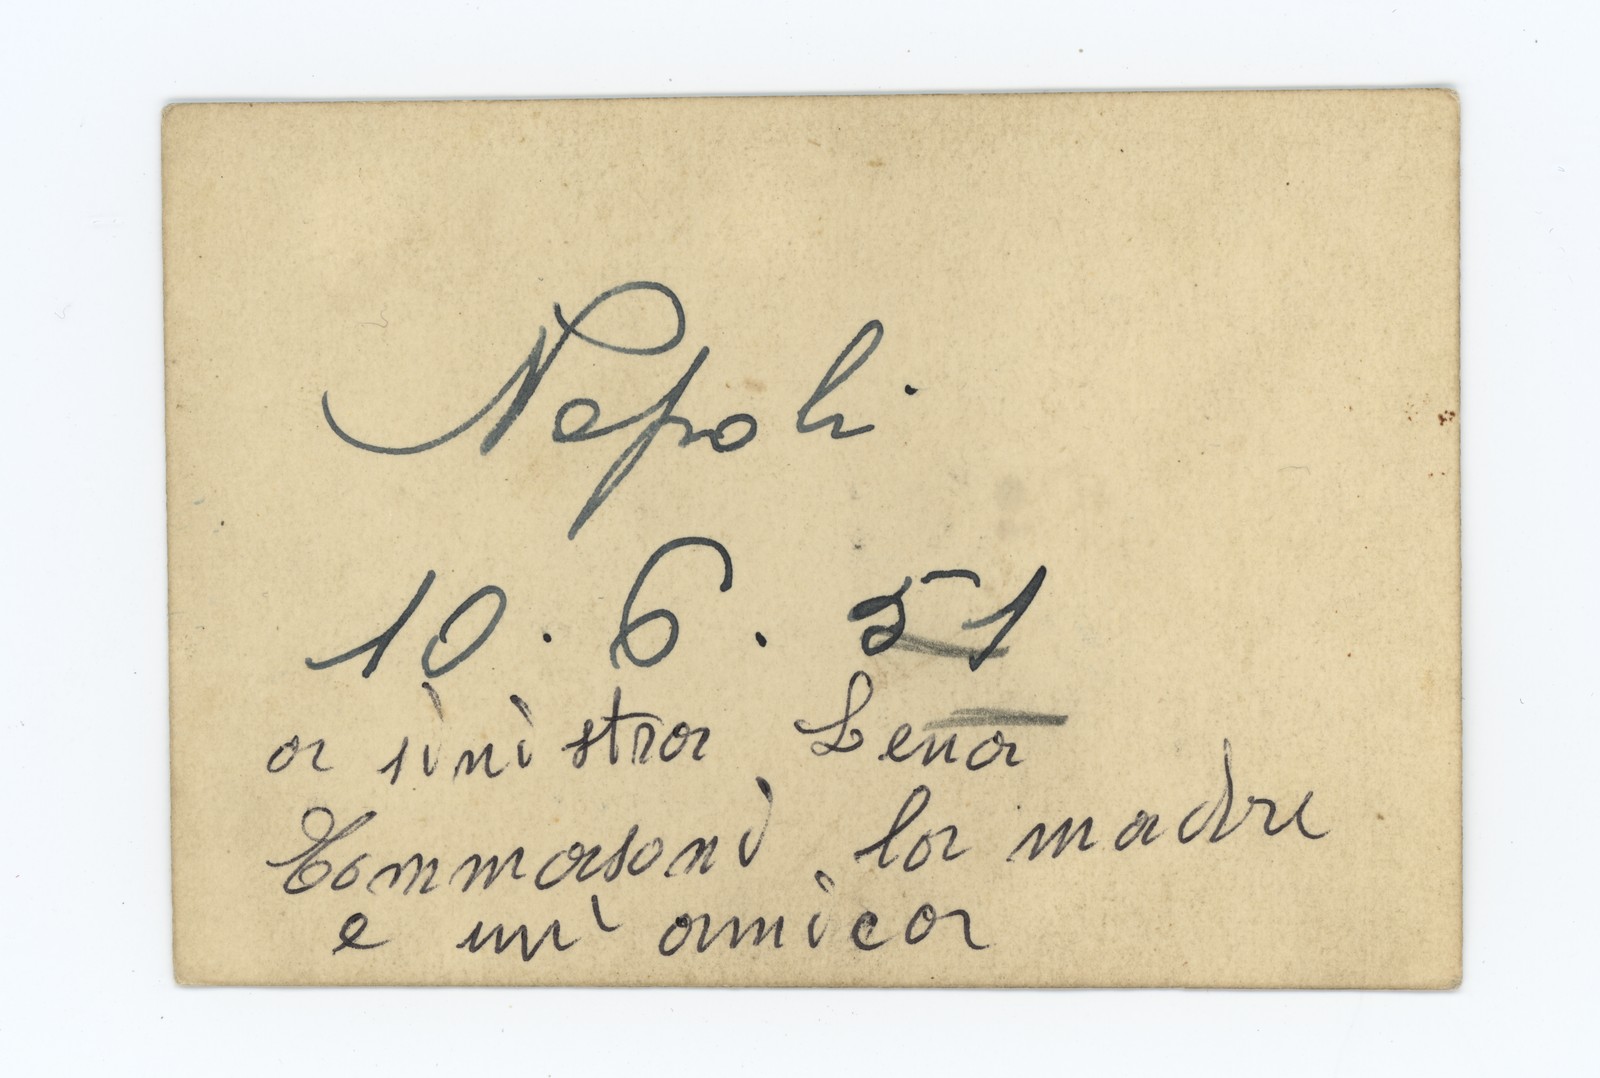 Napoli
10. 6. 51
a sinistra Lena
Tommasoni la madre
e un' amica